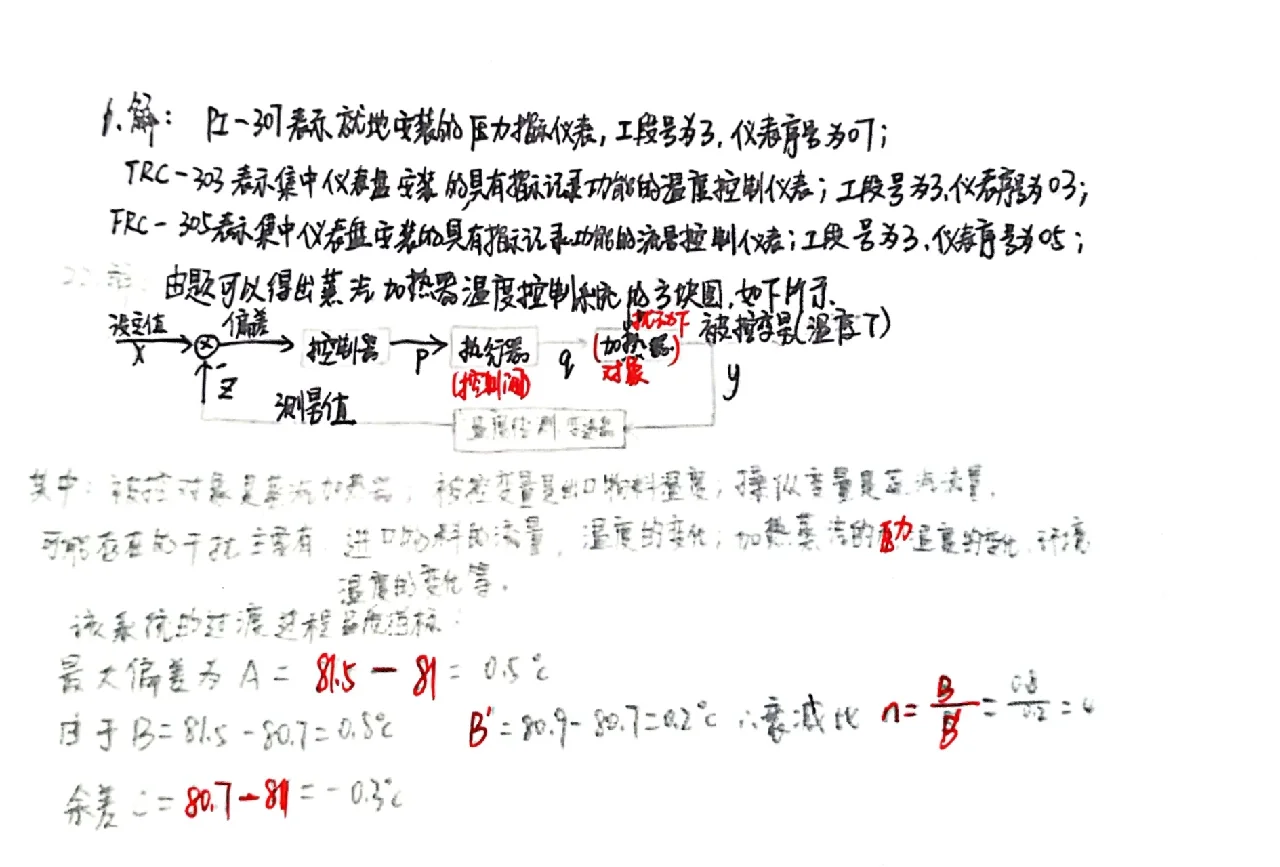 1.解: PI-307表示就地安装的压力指示仪表,工段号为3,仪表序号为07;
TRC-303表示集中仪表盘安装的具有指示记录功能的温度控制仪表;工段号为3,仪表序号为03;
FRC-305表示集中仪表盘安装的具有指示记录功能的流量控制仪表;工段号为3,仪表序号为05;
由题可以得出蒸汽加热器温度控制系统的方块图,如下所示.
设定值 偏差 扰动f 被控变量(温度T)
x 控制器 P 执行器 q (加热器)
- z (控制阀) 对象 y
测量值 温度检测变送器
其中:被控对象是蒸汽加热器;被控变量是出口物料温度;操纵变量是蒸汽流量.
可能存在的干扰主要有:进口物料的流量,温度的变化;加热蒸汽的压力温度的变化、环境
温度的变化等.
该系统的过渡过程品质指标:
最大偏差为A=81.5-81=0.5℃
由于B=81.5-80.7=0.8℃ B'=80.9-80.7=0.2℃ ∴衰减比 n=B/B'=0.8/0.2=4
余差C=80.7-81=-0.3℃